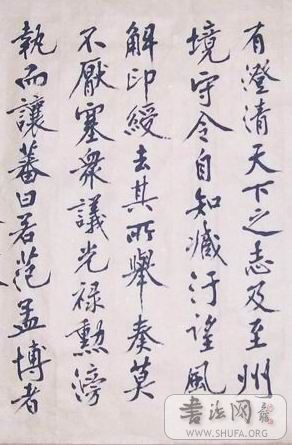 有澄清天下之志及至州
境守令自知臧汙望風
解印綬去其所舉奏莫
不厭塞衆議光禄勲滂
執而讓蕃曰若范孟博者
书法网
WWW.SHUFA.ORG